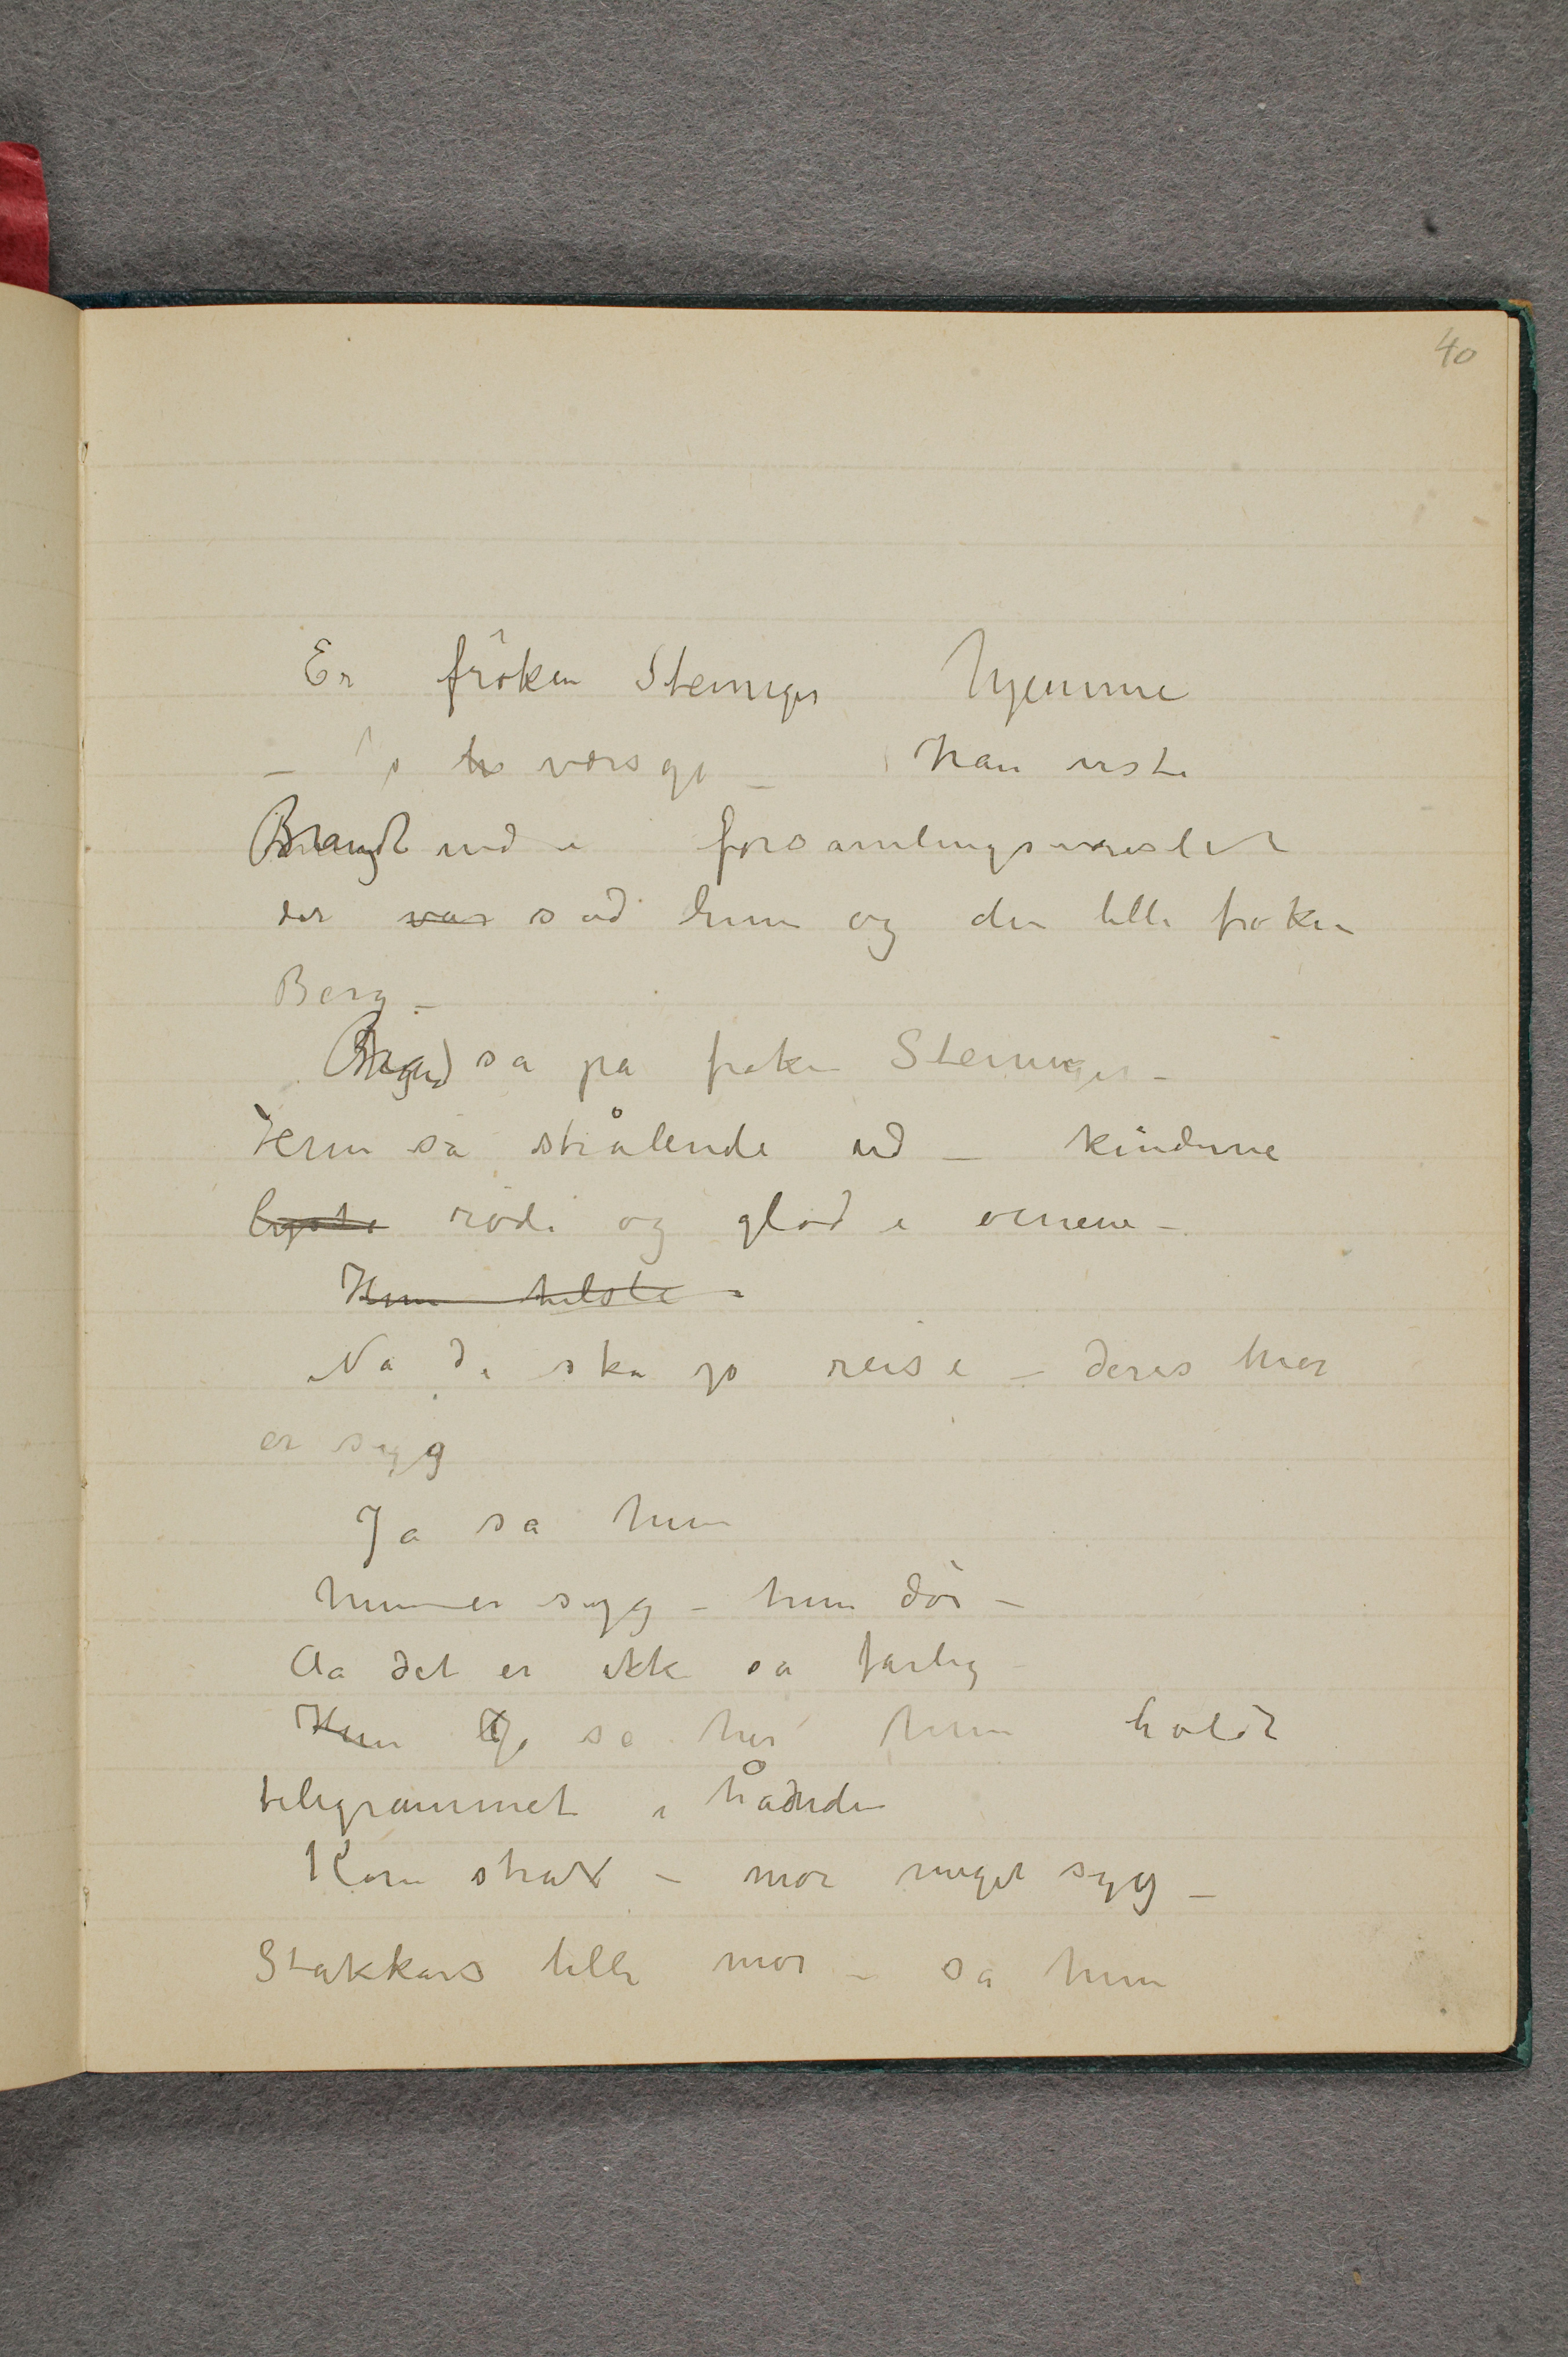 40
Er fröken Steinger hjemme
– Jo h værsgo – han viste
Brandt ind i forsamlingsværeslet
der var sad hun og den lille frøken
Berg –
så på frøken Steinger –
Hun så strålende ud – kinderne
lyste røde og glød i øinene –
Hun hilste –
Nå De ska jo reise – deres mor
er syg
Ja sa hun
hun er syg – hun dör –
Aa det er ikke så farlig –
Hun Jo se her hun holdt
telegrammet i hånden
Kom strax – mor meget syg –
Stakkars lille mor – sa hun